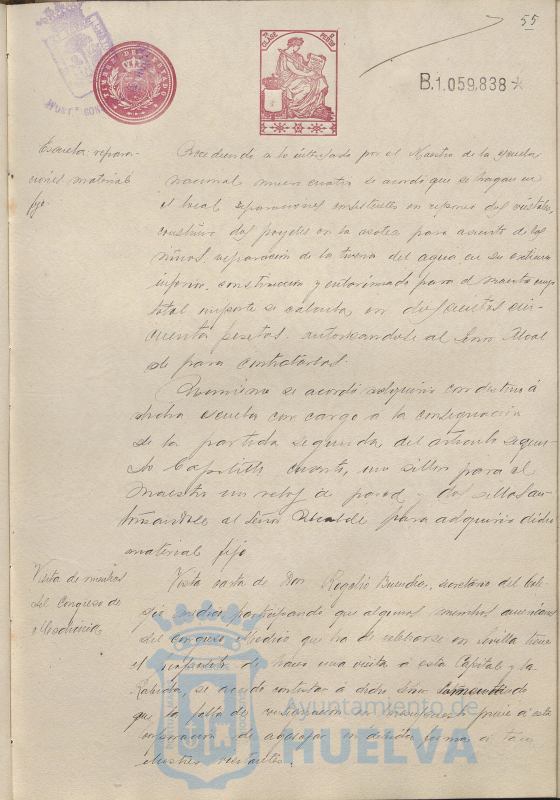 55
7ª CLASE
B.1.059.838*
TIMBRE DEL ESTADO
Escuela: repara-
ciones, material
fijo.
Accediendo a lo interesado por el Maestro de la escuela
nacional número cuatro se acordó que se hagan en
el local reparaciones consistentes en reponer dos cristales,
construir dos poyetes en la azotea para asiento de los
niños, reparación de la tubería del agua en su extremo
inferior, construcción y entarimado para el maestro cuyo
total importe se calcula en doscientas cin-
cuenta pesetas, autorizándole al Señor Alcal
de para contratarlas.
Asimismo se acordó adquirir con destino á
dicha escuela con cargo á la consignación
de la partida segunda, del artículo segun-
do Capítulo cuarto, un sillón para el
Maestro un reloj de pared y dos sillas au-
torizándole al Señor Alcalde para adquirir dicho
material fijo
Visita de médicos
del Congreso de
Medicina.
Vista carta de Don Rogelio Buendía, secretario del Cole-
gio médico participando que algunos miembros americanos
del Congreso Médico que ha de celebrarse en Sevilla tienen
el propósito de hacer una visita á esta Capital y la
Rábida, se acordó contestar á dicho Señor lamentando
que la falta de consignación en presupuesto prive á esta
corporación de agasajar en debida forma á tan
ilustres visitantes.
Ayuntamiento de
HUELVA